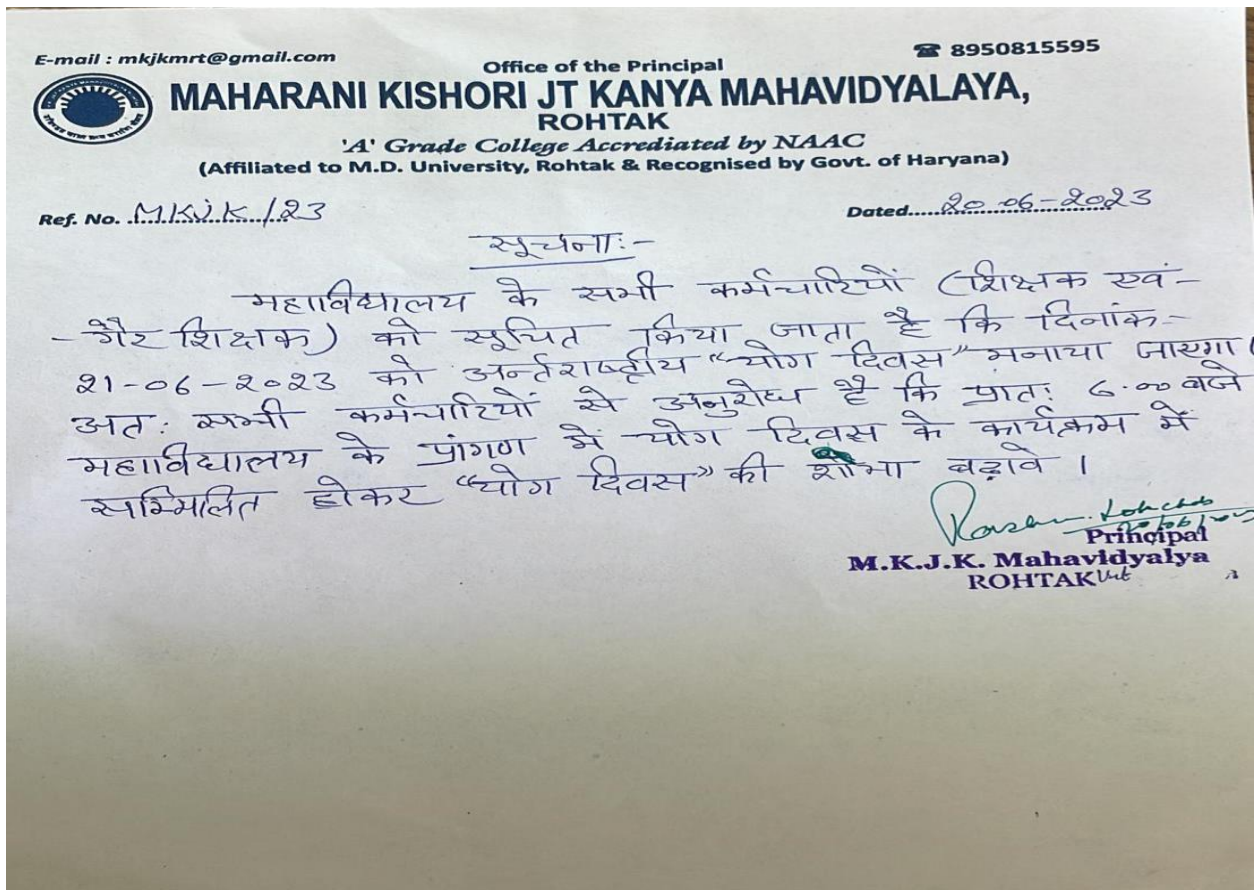 E-mail : mkjkmrt@gmail.com
☎ 8950815595
Office of the Principal
MAHARANI KISHORI JT KANYA MAHAVIDYALAYA,
ROHTAK
'A' Grade College Accrediated by NAAC
(Affiliated to M.D. University, Rohtak & Recognised by Govt. of Haryana)
Ref. No. MKJK/23
Dated.....20-06-2023
सूचनाः-
महाविद्यालय के सभी कर्मचारियों (शिक्षक एवं-
- गैर शिक्षक) को सूचित किया जाता है कि दिनांक-
21-06-2023 को अर्न्तराष्ट्रीय "योग दिवस" मनाया जाएगा।
अतः सभी कर्मचारियों से अनुरोध है कि प्रातः 6.00 बजे
महाविद्यालय के प्रांगण में योग दिवस के कार्यक्रम में
सम्मिलित होकर "योग दिवस" की शोभा बढ़ावे ।
Principal
M.K.J.K. Mahavidyalya
ROHTAK